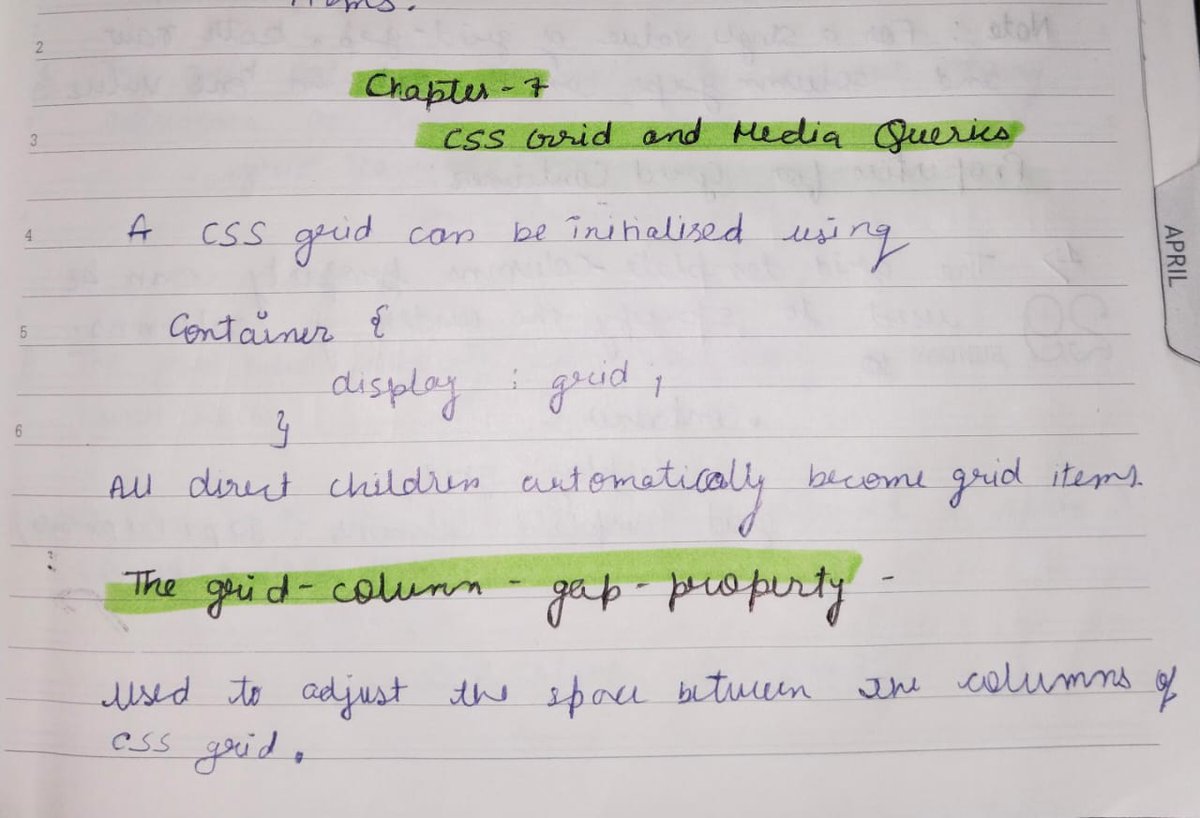 2
Chapter - 7
3
CSS Grid and Media Queries
4
A CSS grid can be initialised using
5
Container {
display : grid ;
6
}
All direct children automatically become grid items.
The grid - column - gap - property -
Used to adjust the space between the columns of
CSS grid.
APRIL